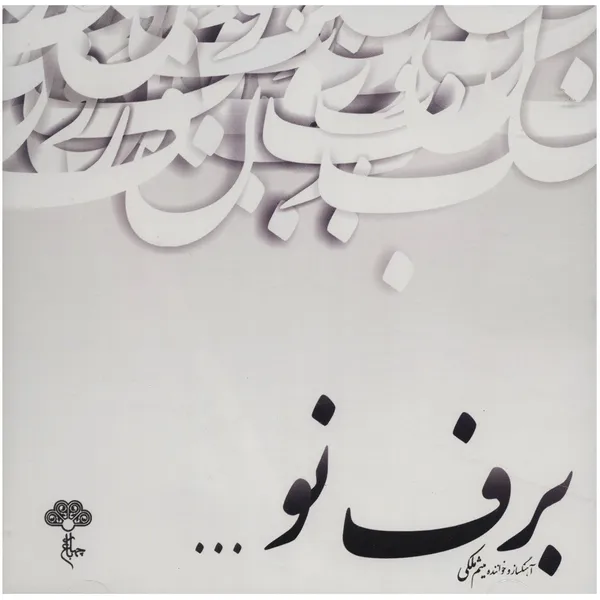 برف نو ...
آهنگساز و خواننده میثم ملکی
چهارباغ